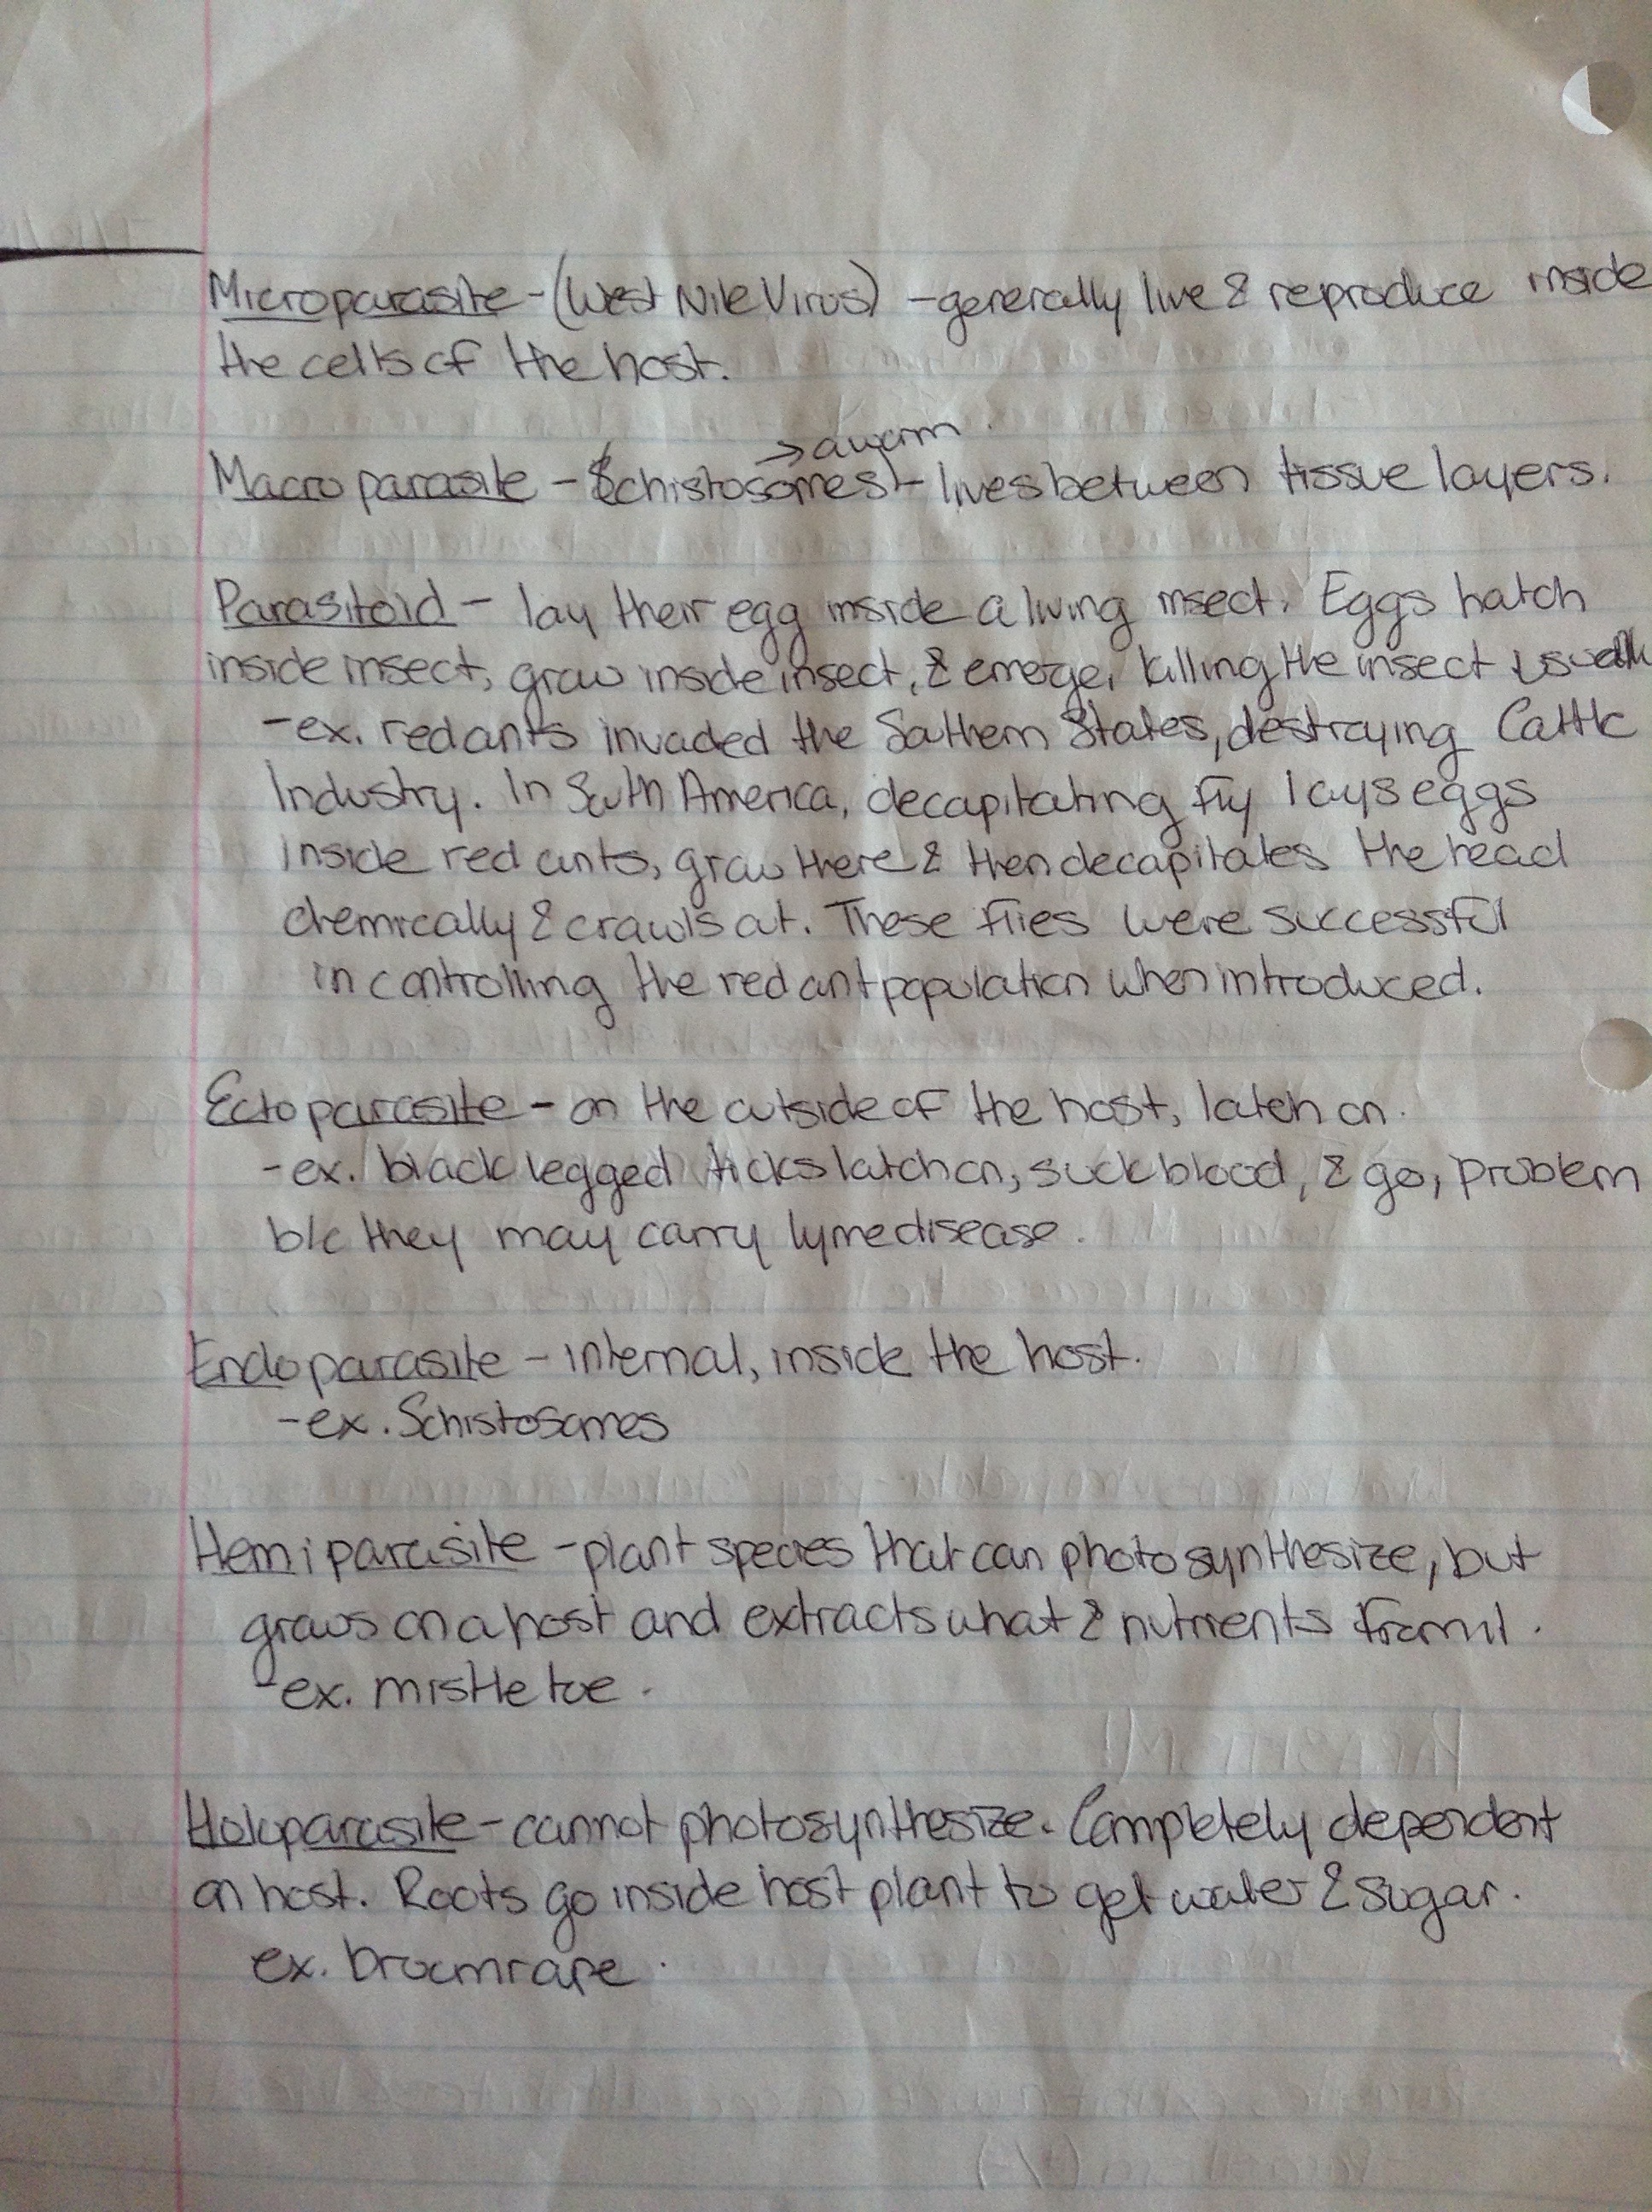 Microparasite - (West Nile Virus) - generally live & reproduce inside
the cells of the host.
→ a worm
Macroparasite - Schistosomes - lives between tissue layers.
Parasitoid - lay their egg inside a living insect. Eggs hatch
inside insect, grow inside insect, & emerge, killing the insect usually
- ex. red ants invaded the Southern States, destroying Cattle
Industry. In South America, decapitating fly lays eggs
inside red ants, grow there & then decapitates the head
chemically & crawls out. These flies were successful
in controlling the red ant population when introduced.
Ectoparasite - on the outside of the host, latch on.
- ex. black legged ticks latch on, suck blood, & go, problem
b/c they may carry lyme disease.
Endoparasite - internal, inside the host.
- ex. Schistosomes
Hemiparasite - plant species that can photosynthesize, but
grows on a host and extracts what & nutrients from it.
- ex. mistletoe.
Holoparasite - cannot photosynthesize. Completely dependent
on host. Roots go inside host plant to get water & sugar.
ex. broomrape.